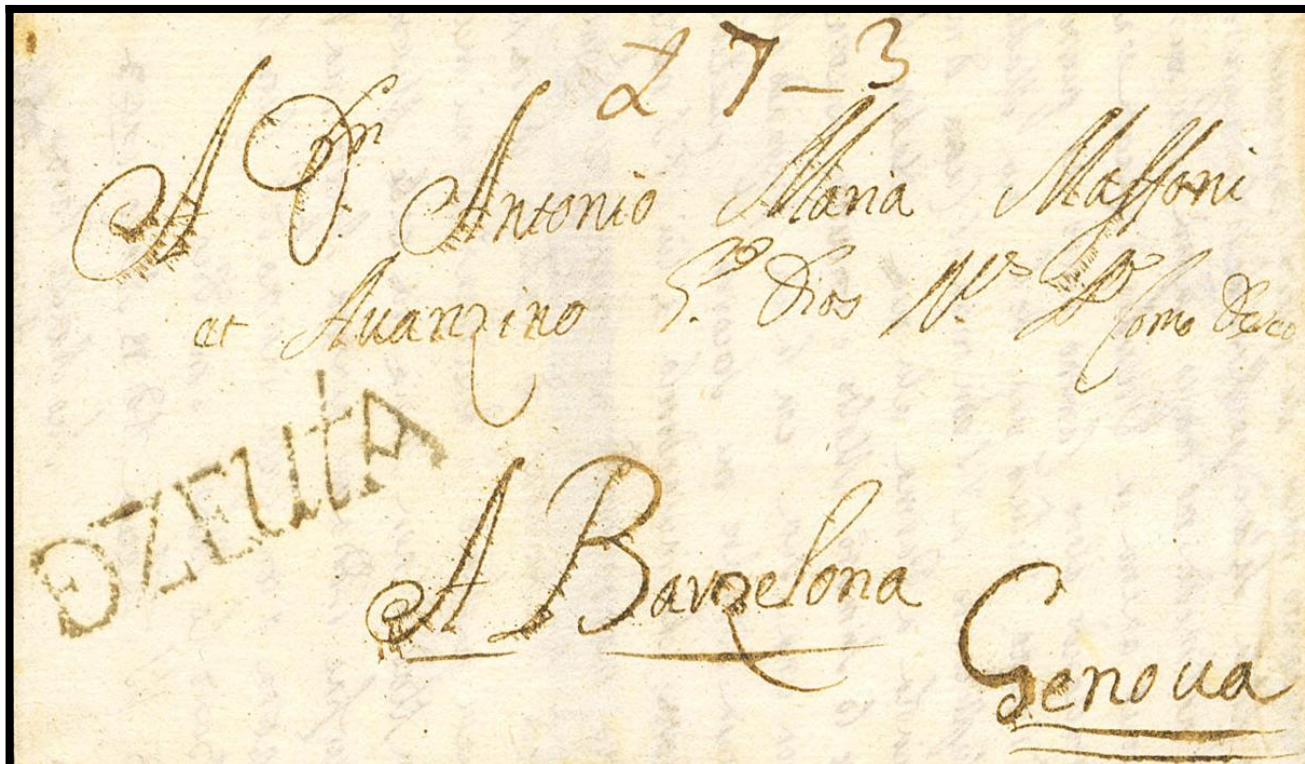 27-3
A Dn Antonio Maria Maffoni
et Auanzino Dios Ns Sr Como Deseo
DZEUTA
A Barzelona
Genoua